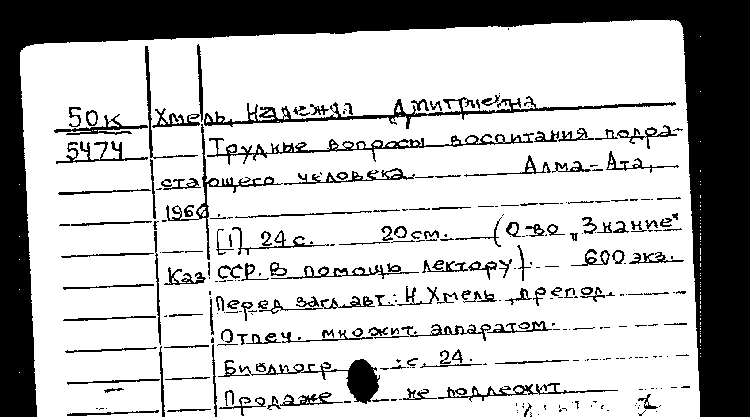 50к Хмель, Надежда Дмитриевна
5474 Трудные вопросы воспитания подра-
стающего человека. Алма-Ата,
1966.
[1], 24 с. 20 см. (О-во „Знание"
Каз ССР. В помощь лектору). 600 экз.
Перед загл. авт.: Н. Хмель, препод.
Отпеч. множит. аппаратом.
Библиогр. : с. 24.
Продаже не подлежит.